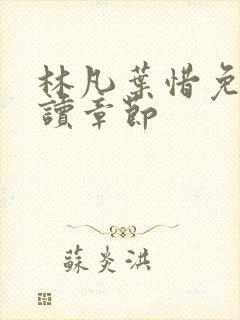 林凡葉惜免
讀章節
蘇炎洪